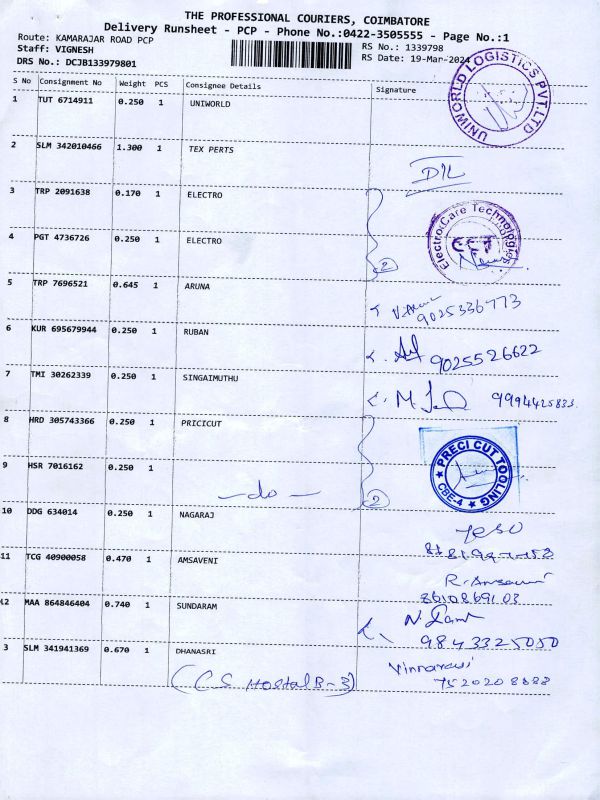 THE PROFESSIONAL COURIERS, COIMBATORE
Delivery Runsheet - PCP - Phone No.:0422-3505555 - Page No.:1
Route: KAMARAJAR ROAD PCP RS No.: 1339798
Staff: VIGNESH RS Date: 19-Mar-2024
DRS No.: DCJB133979801
S No Consignment No Weight PCS Consignee Details Signature
1 TUT 6714911 0.250 1 UNIWORLD
UNIWORLD LOGISTICS PVT.LTD
2 SLM 342010466 1.300 1 TEX PERTS
3 TRP 2091638 0.170 1 ELECTRO
Electro Care Technologies
ECT
4 PGT 4736726 0.250 1 ELECTRO
2
5 TRP 7696521 0.645 1 ARUNA
9025336773
6 KUR 695679944 0.250 1 RUBAN
9025526622
7 TMI 30262339 0.250 1 SINGAIMUTHU
9994425833
8 HRD 305743366 0.250 1 PRICICUT
PRECI CUT TOOLING
CBE-4
9 HSR 7016162 0.250 1
-do-
2
10 DDG 634014 0.250 1 NAGARAJ
11 TCG 40900058 0.470 1 AMSAVENI
8610869103
12 MAA 864846404 0.740 1 SUNDARAM
9843325050
3 SLM 341941369 0.670 1 DHANASRI
(CS Hostal B-3)
7520208888